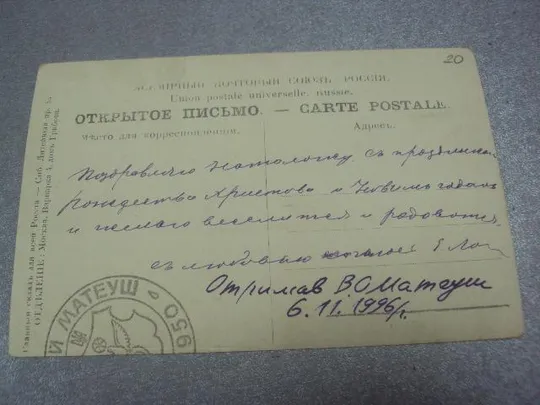 20
ВСЕМІРНЫЙ ПОЧТОВЫЙ СОЮЗЪ. РОССІЯ.
Union postale universelle. Russie.
ОТКРЫТОЕ ПИСЬМО. — CARTE POSTALE.
Мѣсто для корреспонденціи. Адресъ.
Поздравляю Наталочку съ праздника
Рождества Христова и Новымъ годомъ
и желаю веселится и радоватся,
съ любовью
Отримав В О Матеуш
6.11.1996г.
Й МАТЕУШ 950
Главный складъ для всей Россіи — Спб.
ОТДѢЛЕНІЕ: Москва, Варварка 4, домъ Грибова.